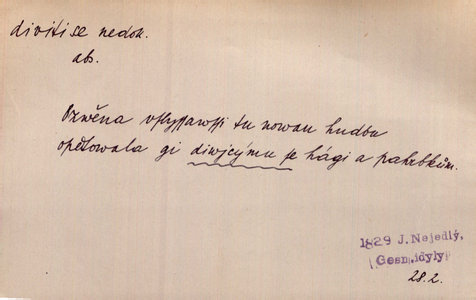 diviti se nedok.
abs.
Ozwěna vslyssawssi tu nowau hudbu
opětowala gi diwjcýmu se hági a pahrbkům.
1829 J. Nejedlý,
Gesn. idyly
28.2.